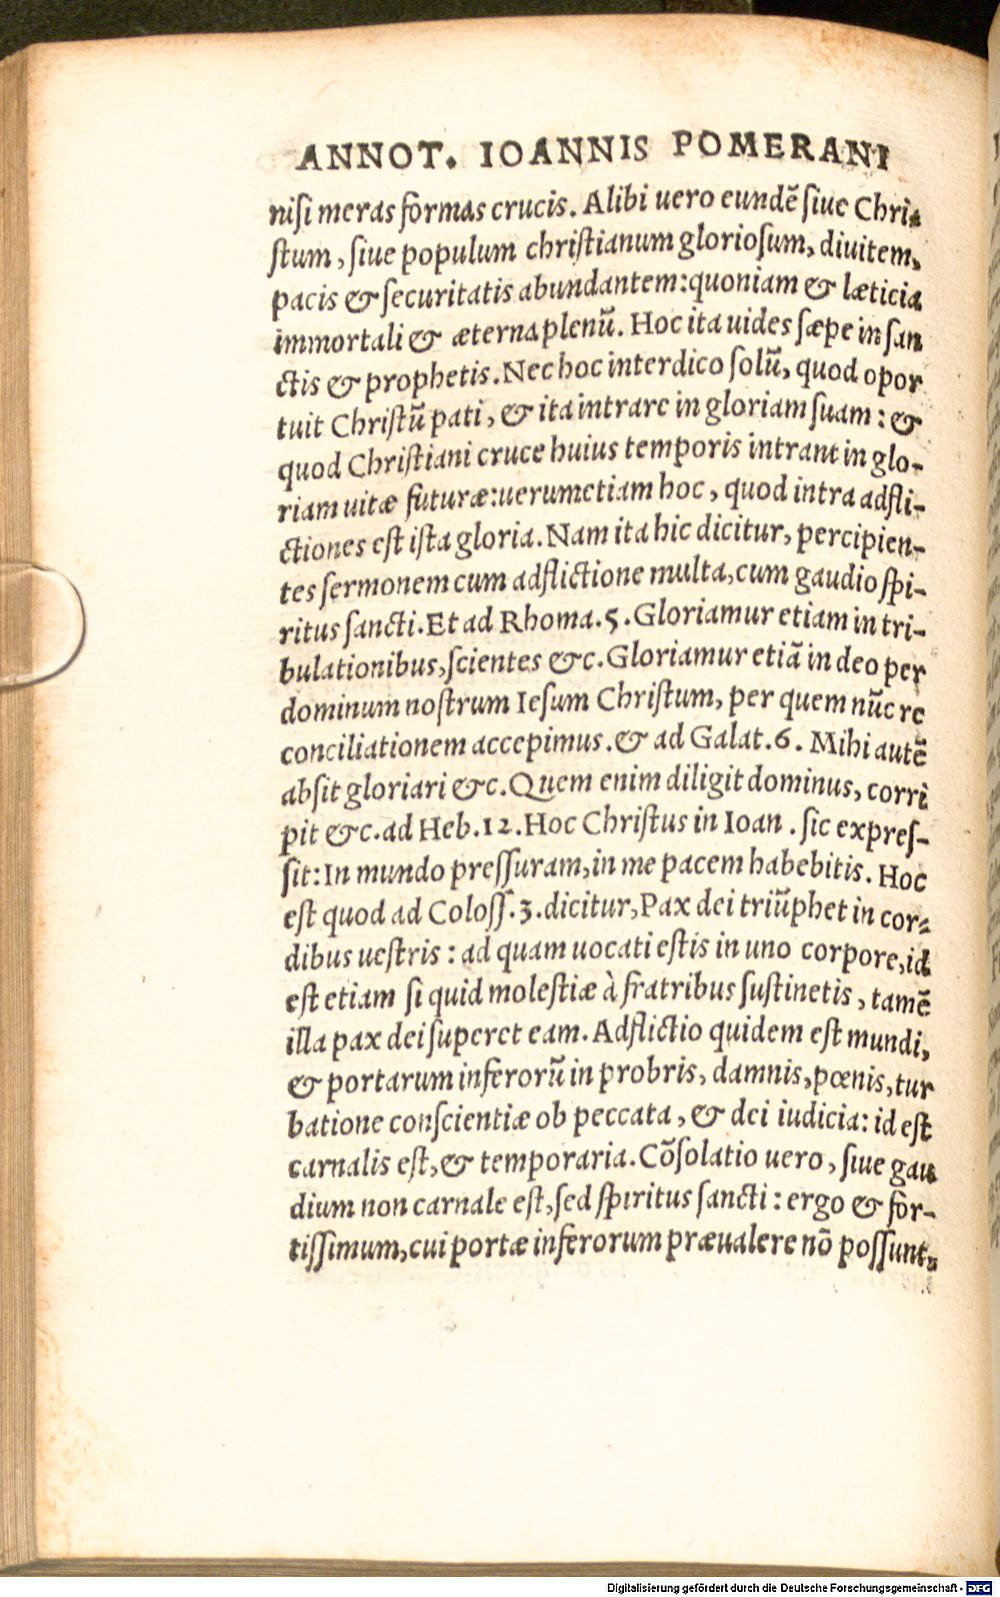 ANNOT. IOANNIS POMERANI
niſi meras formas crucis. Alibi uero eundē ſiue Chri-
ſtum, ſiue populum chriſtianum glorioſum, diuitem,
pacis & ſecuritatis abundantem: quoniam & læticia
immortali & æterna plenū. Hoc ita uides ſæpe in ſan
ctis & prophetis. Nec hoc interdico ſolū, quod opor
tuit Chriſtū pati, & ita intrare in gloriam ſuam: &
quod Chriſtiani cruce huius temporis intrant in glo-
riam uitæ futuræ: uerumetiam hoc, quod intra adfli-
ctiones eſt iſta gloria. Nam ita hic dicitur, percipien-
tes ſermonem cum adflictione multa, cum gaudio ſpi-
ritus ſancti. Et ad Rhoma. 5. Gloriamur etiam in tri-
bulationibus, ſcientes &c. Gloriamur etiā in deo per
dominum noſtrum Ieſum Chriſtum, per quem nūc re
conciliationem accepimus. & ad Galat. 6. Mihi autē
abſit gloriari &c. Quem enim diligit dominus, corri
pit &c. ad Heb. 12. Hoc Chriſtus in Ioan. ſic expreſ-
ſit: In mundo preſſuram, in me pacem habebitis. Hoc
eſt quod ad Coloſſ. 3. dicitur, Pax dei triūphet in cor-
dibus ueſtris: ad quam uocati eſtis in uno corpore, id
eſt etiam ſi quid moleſtiæ à fratribus ſuſtinetis, tamē
illa pax dei ſuperet eam. Adflictio quidem eſt mundi,
& portarum inferorū in probris, damnis, pœnis, tur
batione conſcientiæ ob peccata, & dei iudicia: id eſt
carnalis eſt, & temporaria. Cōſolatio uero, ſiue gau
dium non carnale eſt, ſed ſpiritus ſancti: ergo & for-
tiſſimum, cui portæ inferorum præualere nō poſſunt.
Digitalisierung gefördert durch die Deutsche Forschungsgemeinschaft - DFG